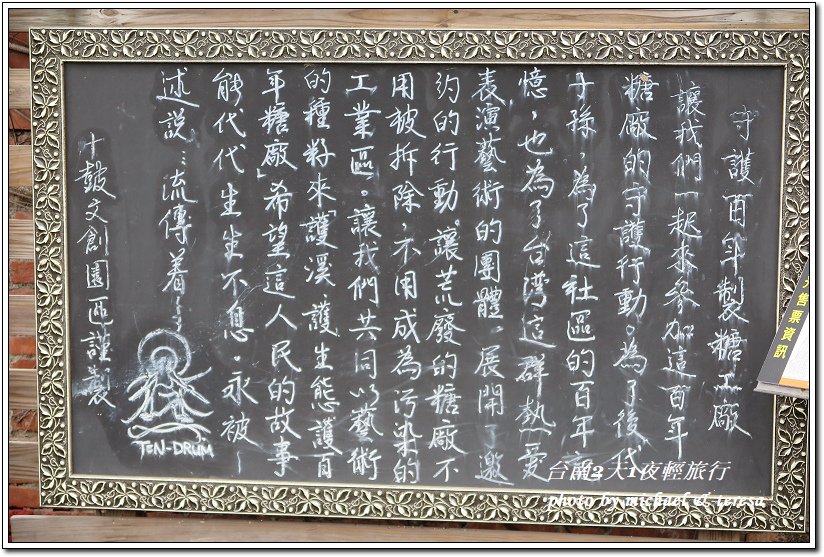 守護百年製糖工廠
讓我們一起來參加這百年
糖廠的守護行動。為了後代
子孫，為了這社區的百年
憶，也為了台灣這群熱愛
表演藝術的團體。展開了邀
約的行動。讓荒廢的糖廠不
用被拆除，不用成為污染的
工業區。讓我們共同以藝術
的種籽來「護溪 護生態 護百
年糖廠」希望這人民的故事
能代代生生不息。永被~
述說…流傳着~~
十鼓文創園區謹製
TEN-DRUM
售票資訊
台南2天1夜輕旅行
photo by michael & teresa